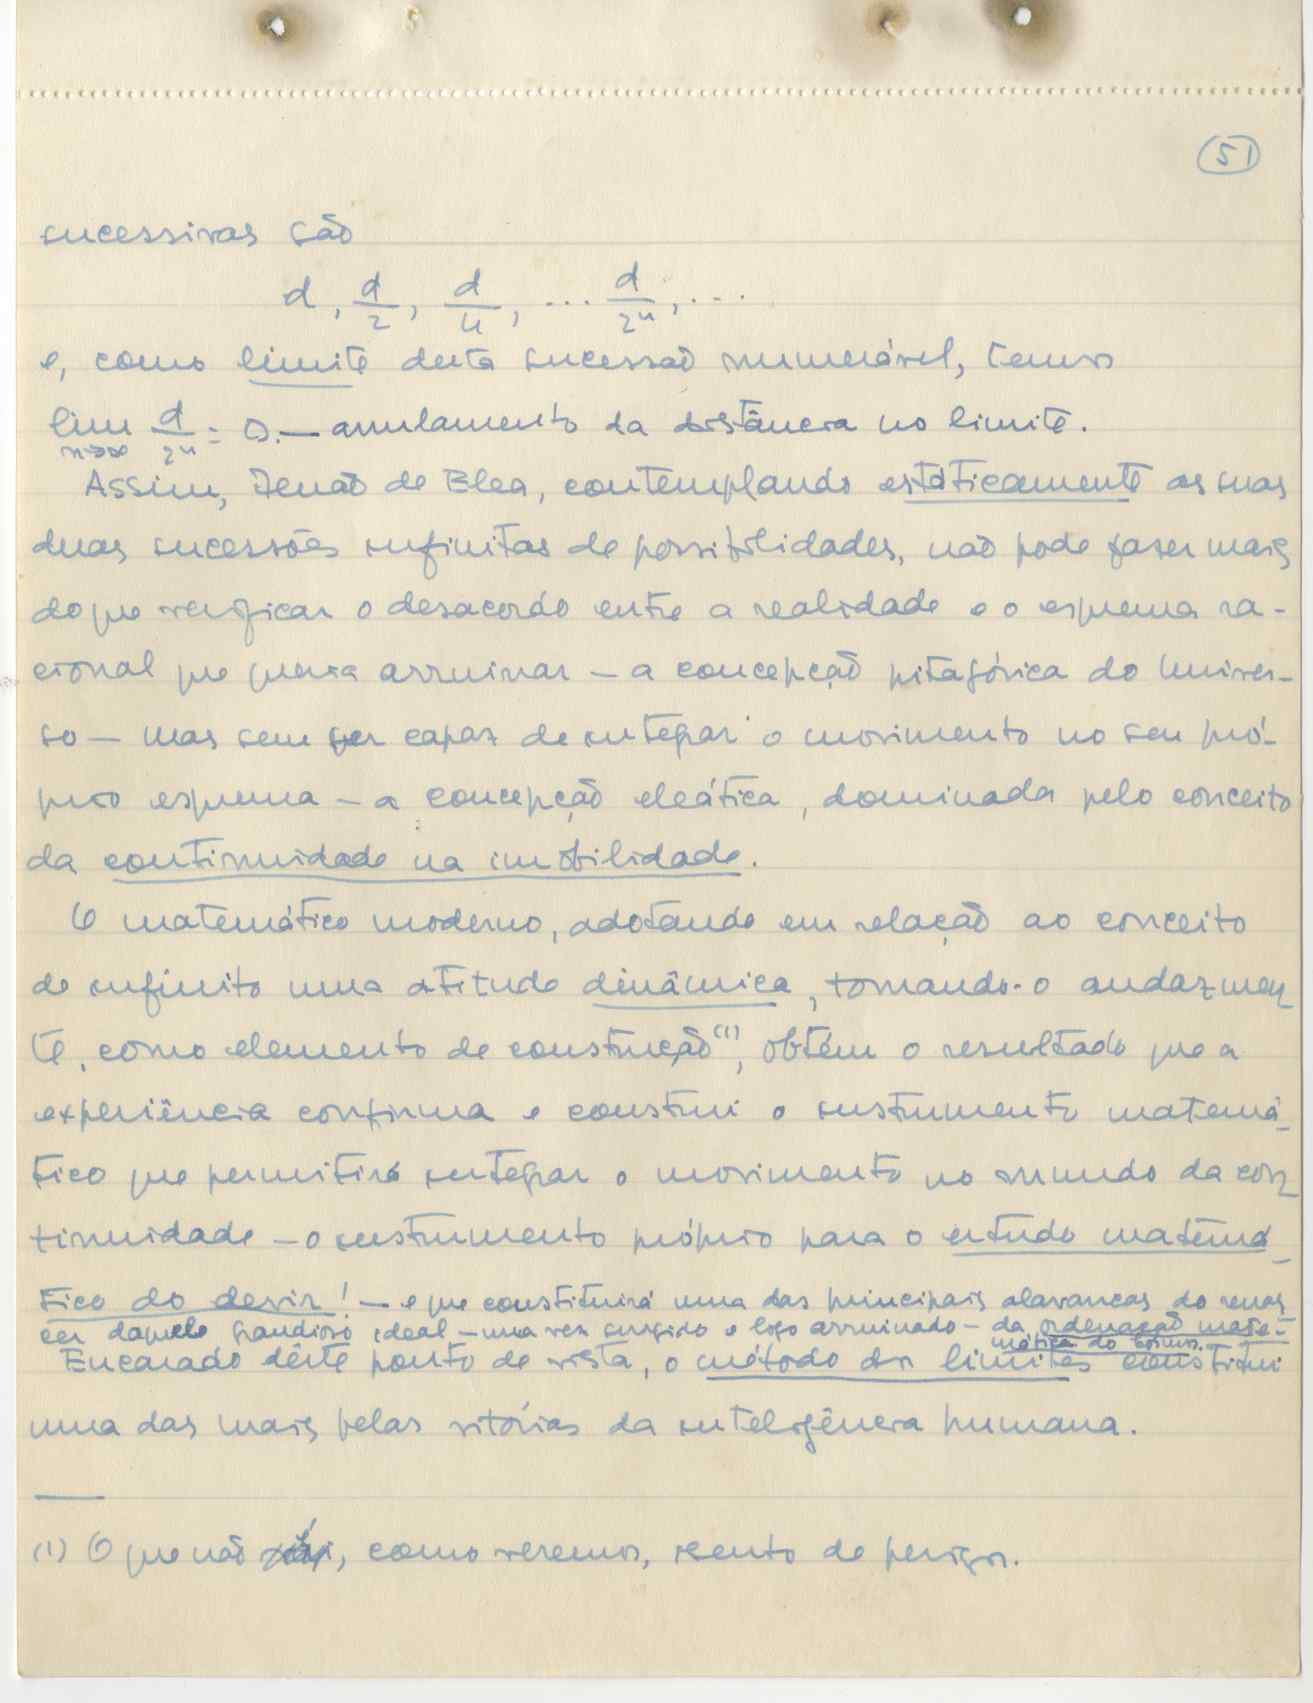 51
sucessivas são
d, d/2, d/4, ... d/2ⁿ, ...
e, como limite desta sucessão numerável, temos
lim n→∞ d/2ⁿ = 0. — anulamento da distância no limite.
Assim, Zenão de Elea, contemplando estáticamente as suas
duas sucessões infinitas de possibilidades, não pode fazer mais
do que verificar o desacordo entre a realidade e o esquema ra-
cional que queria arruinar — a concepção pitagórica do Univer-
so — mas sem ser capaz de integrar o movimento no seu pró-
prio esquema — a concepção eleática, dominada pelo conceito
da continuidade na imobilidade.
O matemático moderno, adotando em relação ao conceito
de infinito uma atitude dinâmica, tomando-o audazmen
te, como elemento de construção(1), obtém o resultado que a
experiência confirma e construi o instrumento matemá-
tico que permitirá integrar o movimento no mundo da con
tinuidade — o instrumento próprio para o estudo matemá-
tico do devir! — e que constituirá uma das principais alavancas do renas
cer daquele grandioso ideal — uma vez surgido e logo arruinado — da ordenação mate-
mática do Cosmos.
Encarado dêste ponto de vista, o método dos limites constitui
uma das mais belas vitórias da inteligência humana.
(1) O que não é, como veremos, isento de perigos.